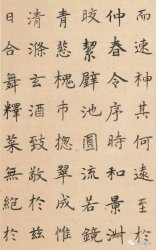 而速神其何遠至於
仲春令序時和景淑
皎絜璧池圓流若鏡
青葱槐市揔翠成帷
清滌玄酒致敬於兹
日合舞釋菜無絕於